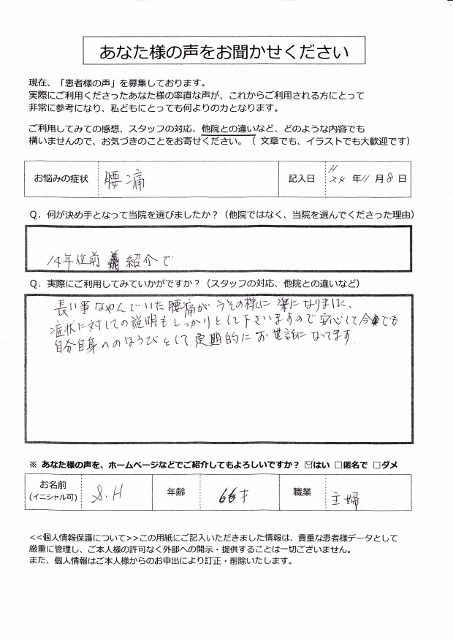 あなた様の声をお聞かせください
現在、「患者様の声」を募集しております。
実際にご利用くださったあなた様の率直な声が、これからご利用される方にとって
非常に参考になり、私どもにとっても何よりの力となります。
ご利用してみての感想、スタッフの対応、他院との違いなど、どのような内容でも
構いませんので、お気づきのことをお寄せください。（ 文章でも、イラストでも大歓迎です）
お悩みの症状 腰痛 記入日 H24年11月8日
Q．何が決め手となって当院を選びましたか？（他院ではなく、当院を選んでくださった理由）
14年位前 紹介で
Q．実際にご利用してみていかがですか？（スタッフの対応、他院との違いなど）
長い事なやんでいた腰痛がうその様に楽になりました、
症状に対しての説明もしっかりとして下さいますので安心して今でも
自分自身へのほうびとして定期的にお世話になってます
※ あなた様の声を、ホームページなどでご紹介してもよろしいですか？ ☑はい □匿名で □ダメ
お名前 S.H 年齢 66才 職業 主婦
（イニシャル可）
<<個人情報保護について>>この用紙にご記入いただきました情報は、貴重な患者様データとして
厳重に管理し、ご本人様の許可なく外部への開示・提供することは一切ございません。
また、個人情報はご本人様からのお申出により訂正・削除いたします。